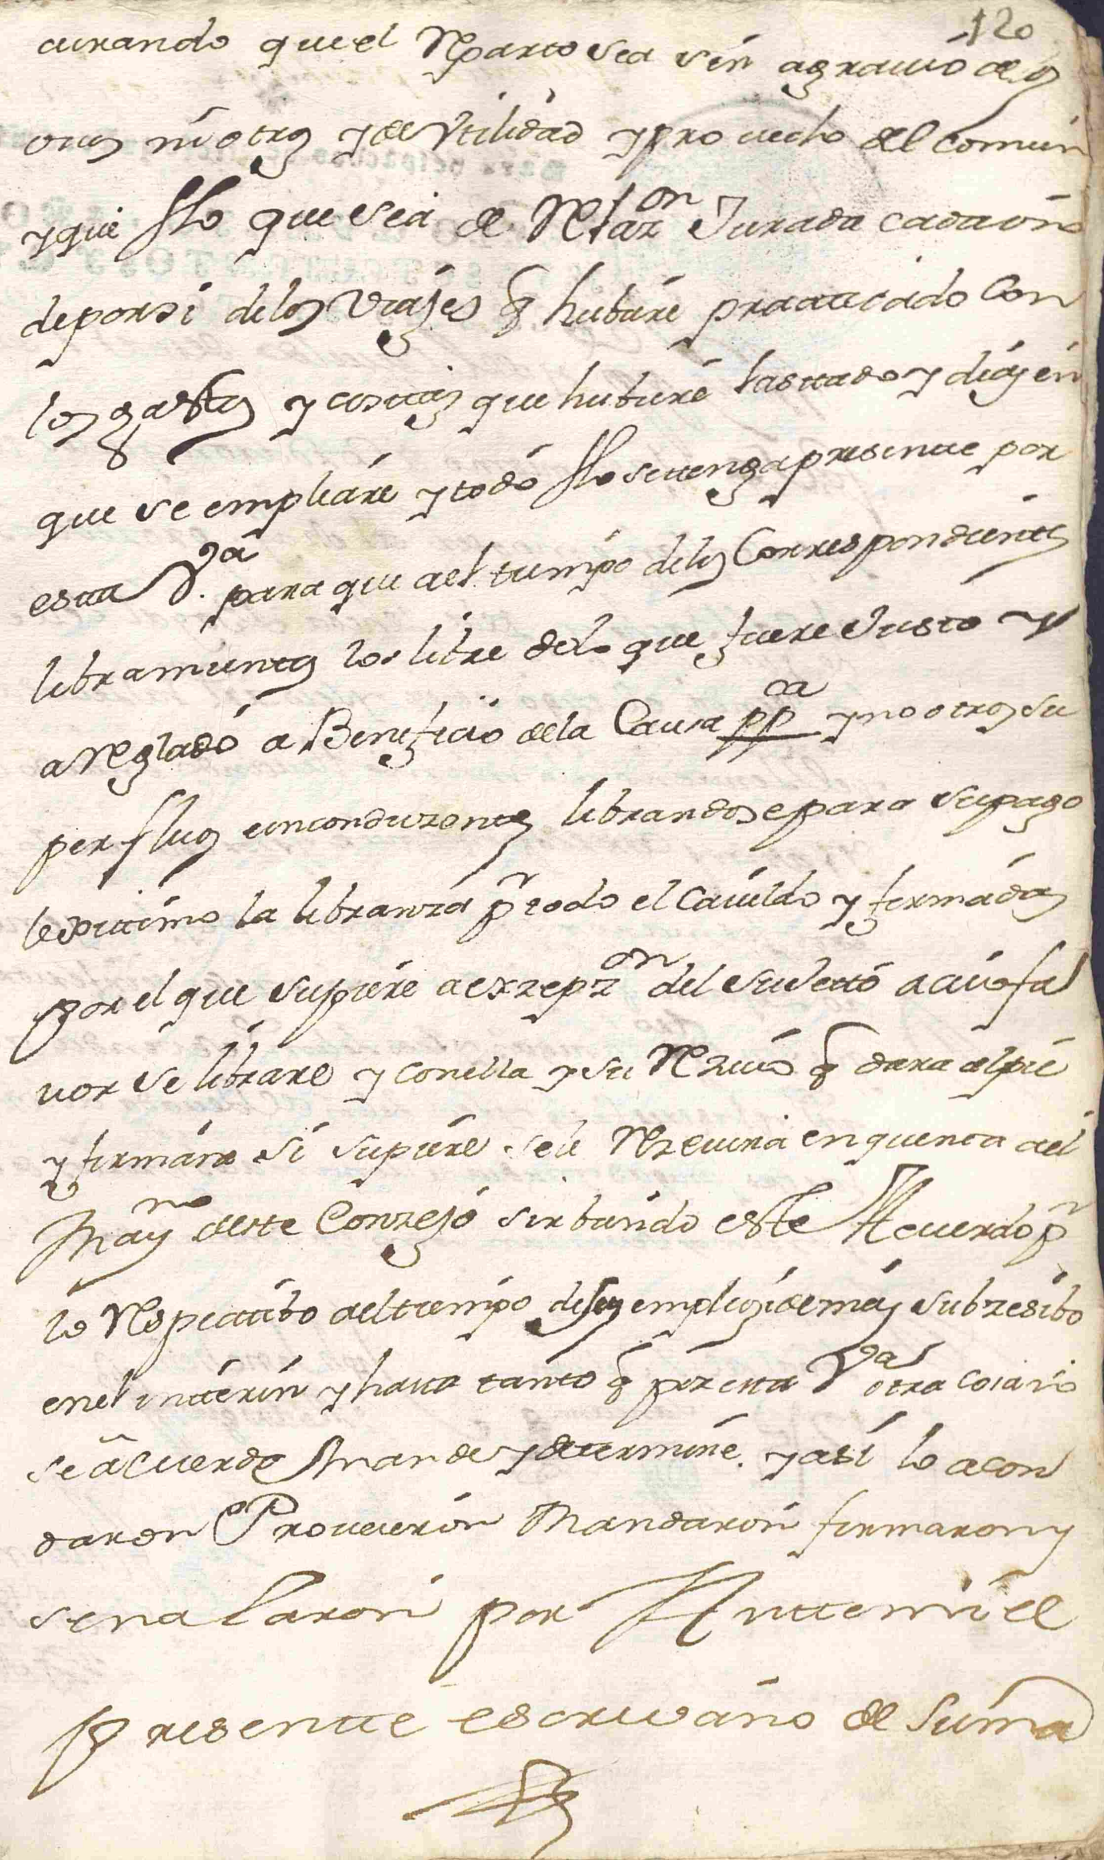 120
curando que el Rparto sea sin agravio de
unos ni otros y de Utilidad y provecho del Comun
y que sello que sea de Relazon Jurada cada uno
de por si de los Viajes q hubiere practicado Con
los gastos y costas que hubiere lastado y dias en
que se empleare y todo ello se tenga presente por
esta Va. para que a el tiempo de los Correspondientes
libramientos los libre de lo que fuere Justo y
aReglado a Benefizio de la Causa ppca y no otros su
perfluos e inconduzentes librandose para su pago
lexitimo la libranza pr todo el Cavildo y firmada
por el que supiere a exzepzon del Sujetto a cuio fa
vor se librare y con ella y su Rezivo q dara al pie
y firmara si supiere se le Rezevira en quenta a el
Maymo deste Conzejo sirbiendo este Acuerdo pr
lo Respectibo a el tiempo de sus empleos i demas subzesibo
en el intterin y hasta tanto q por esta Va otra cosa no
se acuerde Mande y determine. y asi lo acor
daron Proveieron Mandaron firmaron y
señalaron por Antte mi el
presentte escrivano de Suma